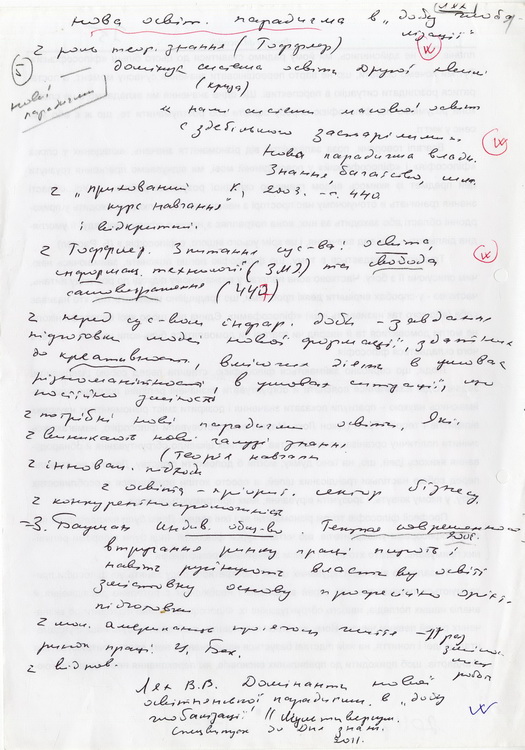 Нова освіт. парадигма в "добу глобалізації"
2 роль теор. знання (Тоффлер)
5
домінує система освіти Другої хвилі
(криза)
нової парадигми
і наші системи масової освіт
є здебільшого застарілими.
Нова парадигма влади.
Знання багатство
2 "прихований К. 2003. - с. 440
курс навчання"
і відкритий.
2 Тоффлер. Знання сус-ва: освіта,
інформац. технології (ЗМІ) та свобода
самовираження (447)
2 перед сус-вом інфор. доби завдання
підготовки людей нової формації, здатних
до креативност. вміючих діяти в умовах
різноманітності в умовах ситуації, що
постійно змінюєт
2 потрібні нові парадигми освіти, які.
2 виникають нові галузі знання
(Теорія навчання
2 інновац. підходи
2 освіта - пріорит. сектор бізнесу
2 конкурентноспроможність
З. Бауман Индив. общ-во. Текучая современность
2008.
втручання ринку праці
навіть руйнують власт. освіті
змістовну основу професійно орієнт.
підготовки
2 мол. американець протягом життя - 11 раз
ринок праці У. Бек.
зміню.
місце роботи
2 віднов.
Лях В.В. Домінанти нової
освітянської парадигми в "добу
глобалізації" // Мультиверсум.
Спецвипуск до Дня знань.
2011.